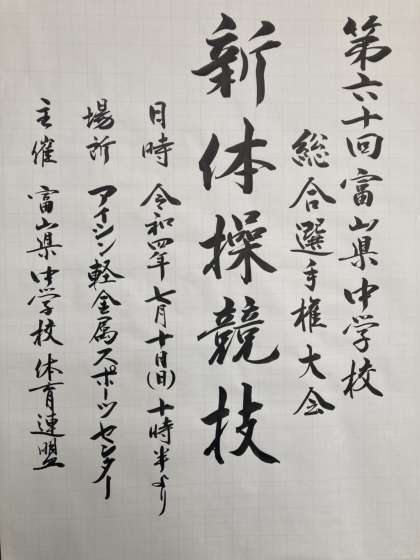 第六十回富山県中学校
総合選手権大会
新体操競技
日時 令和四年七月十日(日)十時半より
場所 アイシン軽金属スポーツセンター
主催 富山県中学校体育連盟